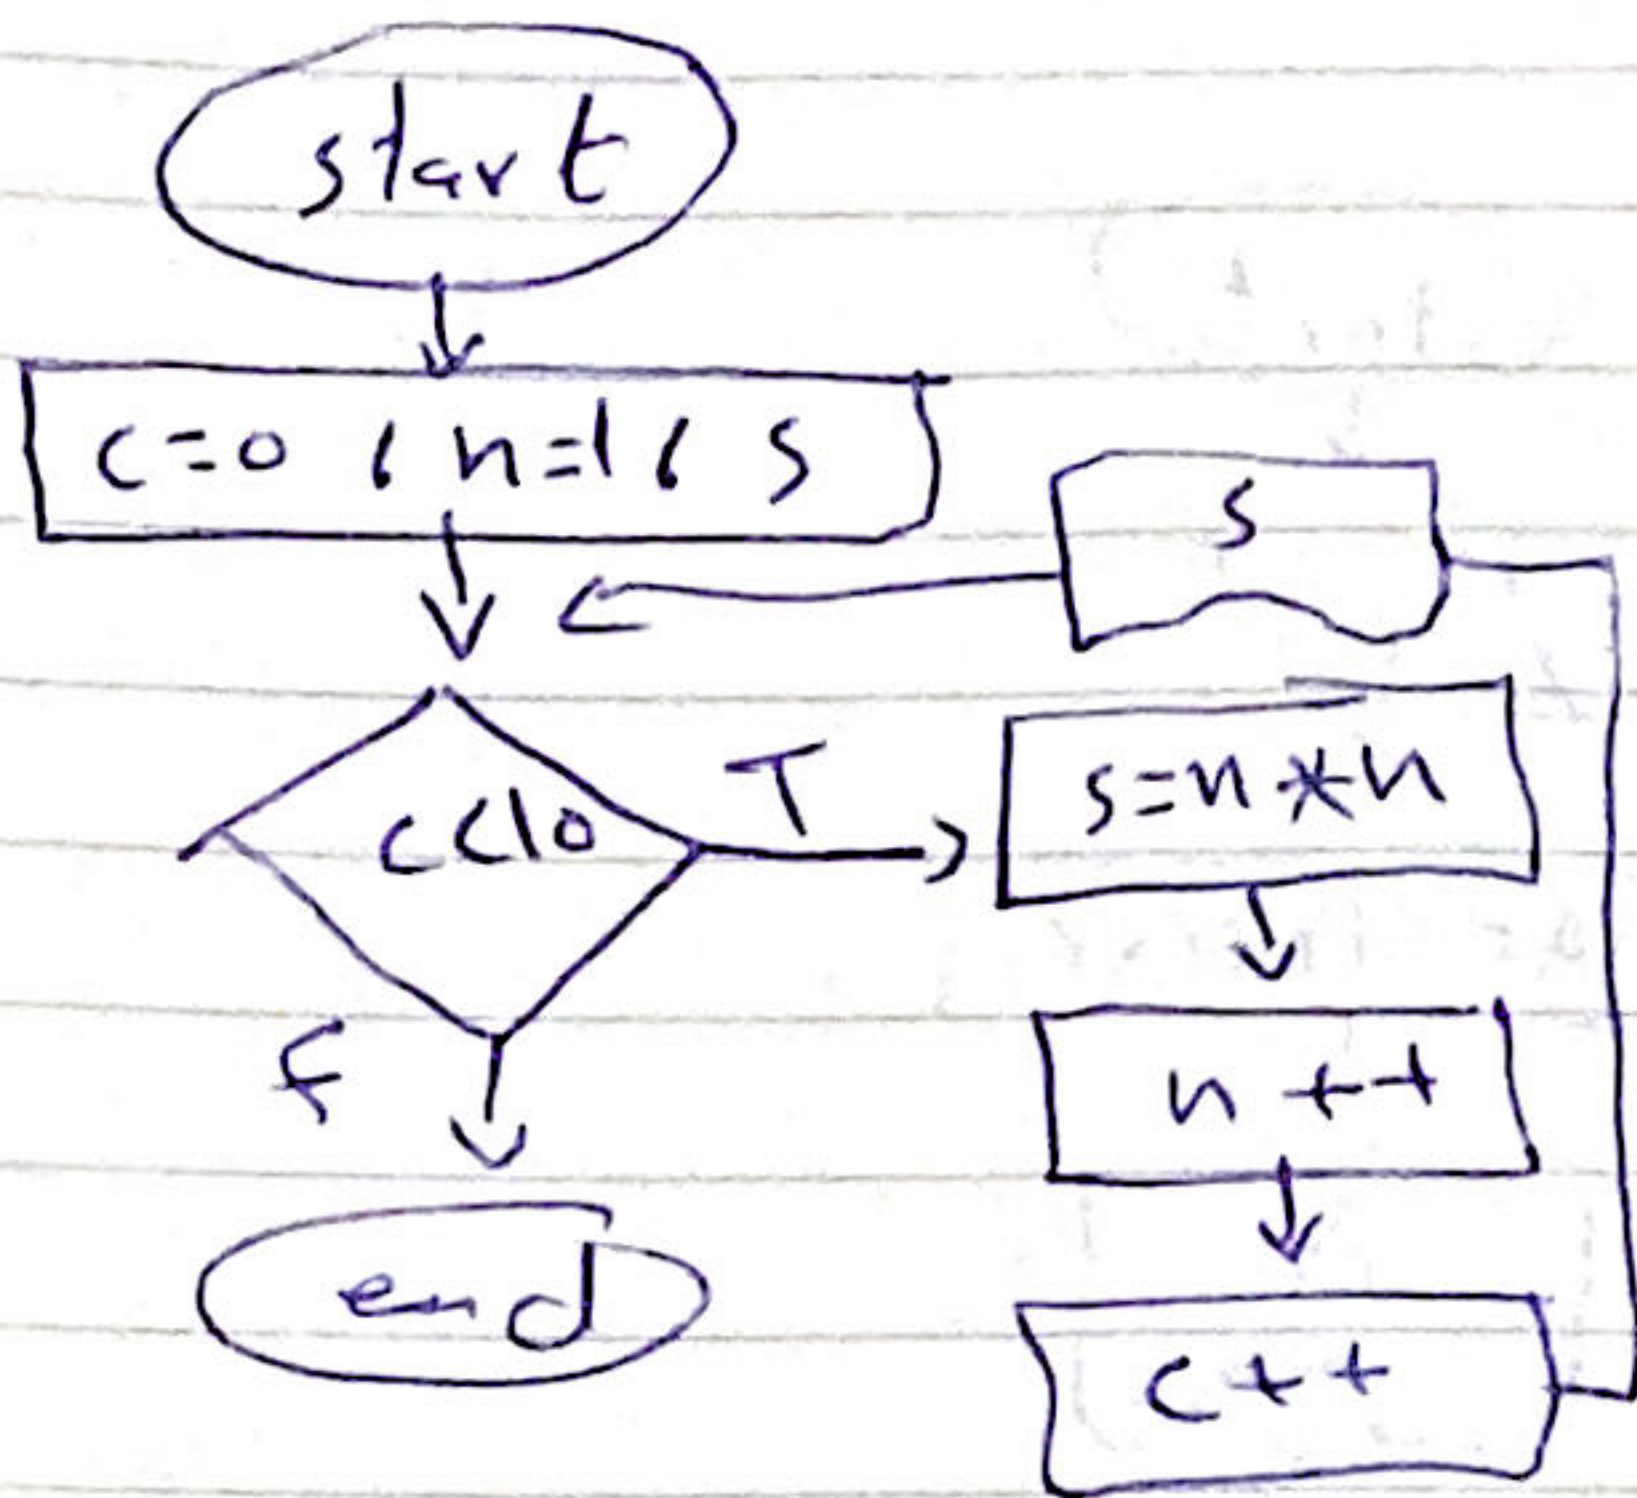 start
c=0 , n=1 , s
s
c<10
T
s=n*n
f
n++
end
c++